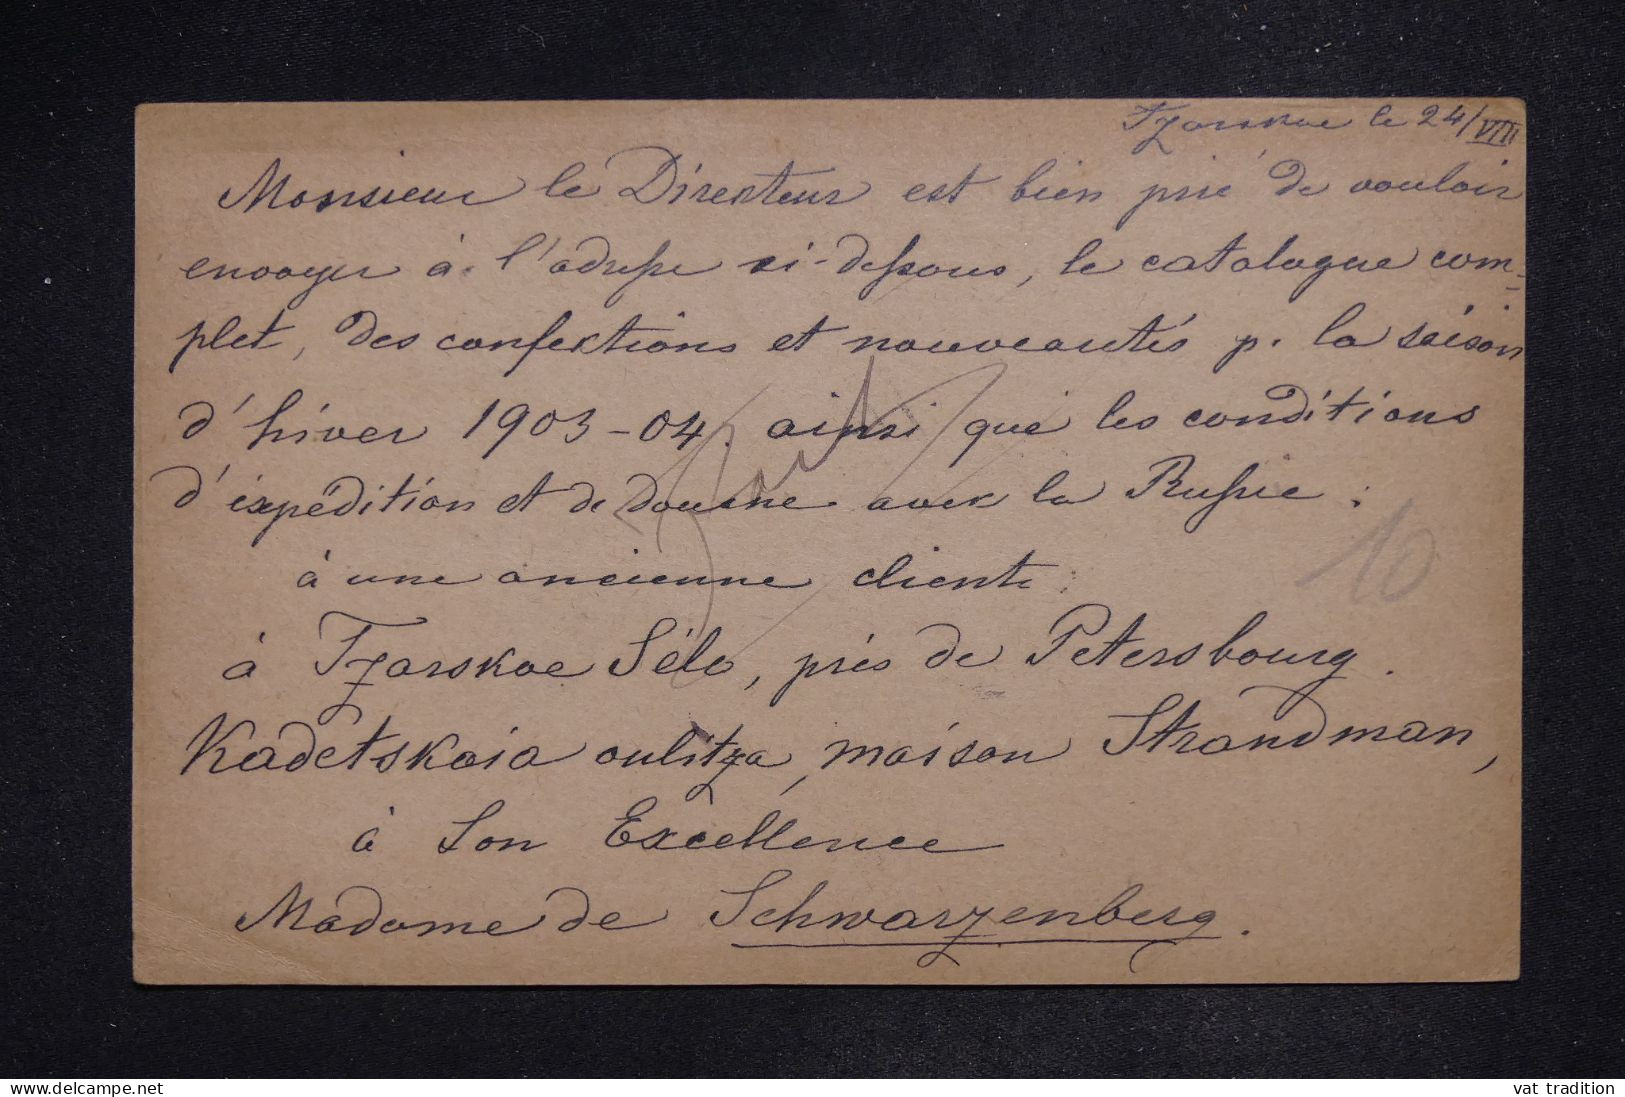 Tzarskoe le 24/VIII
Monsieur le Direkteur est bien prié de vouloir
envoyer à l'adresse ci-dessous, le catalogue com-
plet, des confektions et nouveautés p. la saison
d'hiver 1903-04. ainsi que les conditions
d'éxpédition et de douane avec la Russie:
à une ancienne cliente:
à Tzarskoe Sélo, près de Petersbourg.
Kadetskaia oulitza, maison Strandman,
à Son Excellence
Madame de Schwarzenberg.
10
delcampe.net
vat tradition